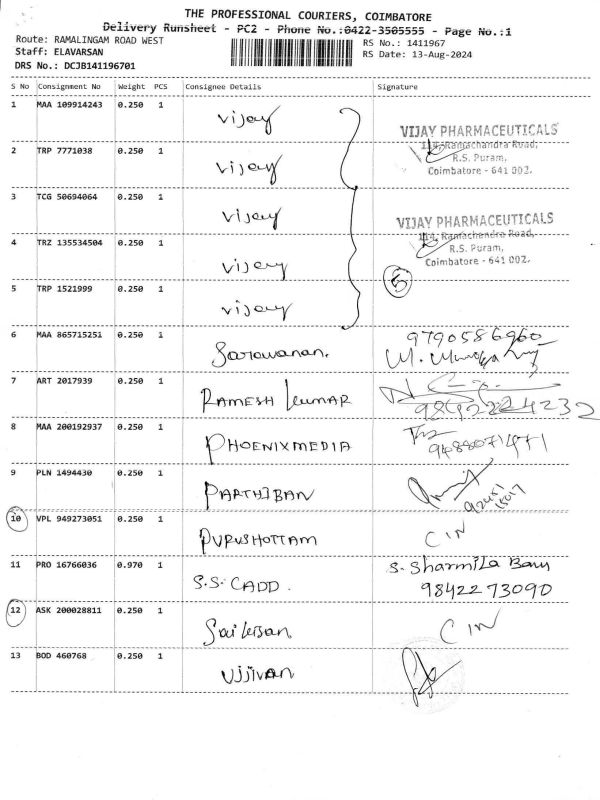 THE PROFESSIONAL COURIERS, COIMBATORE
Delivery Runsheet - PC2 - Phone No.:0422-3505555 - Page No.:1
Route: RAMALINGAM ROAD WEST
RS No.: 1411967
Staff: ELAVARSAN
RS Date: 13-Aug-2024
DRS No.: DCJB141196701
S No Consignment No Weight PCS Consignee Details Signature
1 MAA 109914243 0.250 1 Vijay
VIJAY PHARMACEUTICALS
114, Ramachandra Road,
R.S. Puram,
Coimbatore - 641 002.
2 TRP 7771038 0.250 1 Vijay
3 TCG 50694064 0.250 1 Vijay
VIJAY PHARMACEUTICALS
114, Ramachandra Road,
R.S. Puram,
Coimbatore - 641 002.
4 TRZ 135534504 0.250 1 Vijay
5
5 TRP 1521999 0.250 1 Vijay
6 MAA 865715251 0.250 1 Sarawanan. 9790586960
7 ART 2017939 0.250 1 RAMESH KUMAR 9842224232
8 MAA 200192937 0.250 1 PHOENIXMEDIA 9488071471
9 PLN 1494430 0.250 1 PARTHIBAN
10 VPL 949273051 0.250 1 PURUSHOTTAM CIN
11 PRO 16766036 0.970 1 S.S. CADD. S. Sharmila Banu
9842273090
12 ASK 200028811 0.250 1 CIN
13 BOD 460768 0.250 1 UJJIVAN